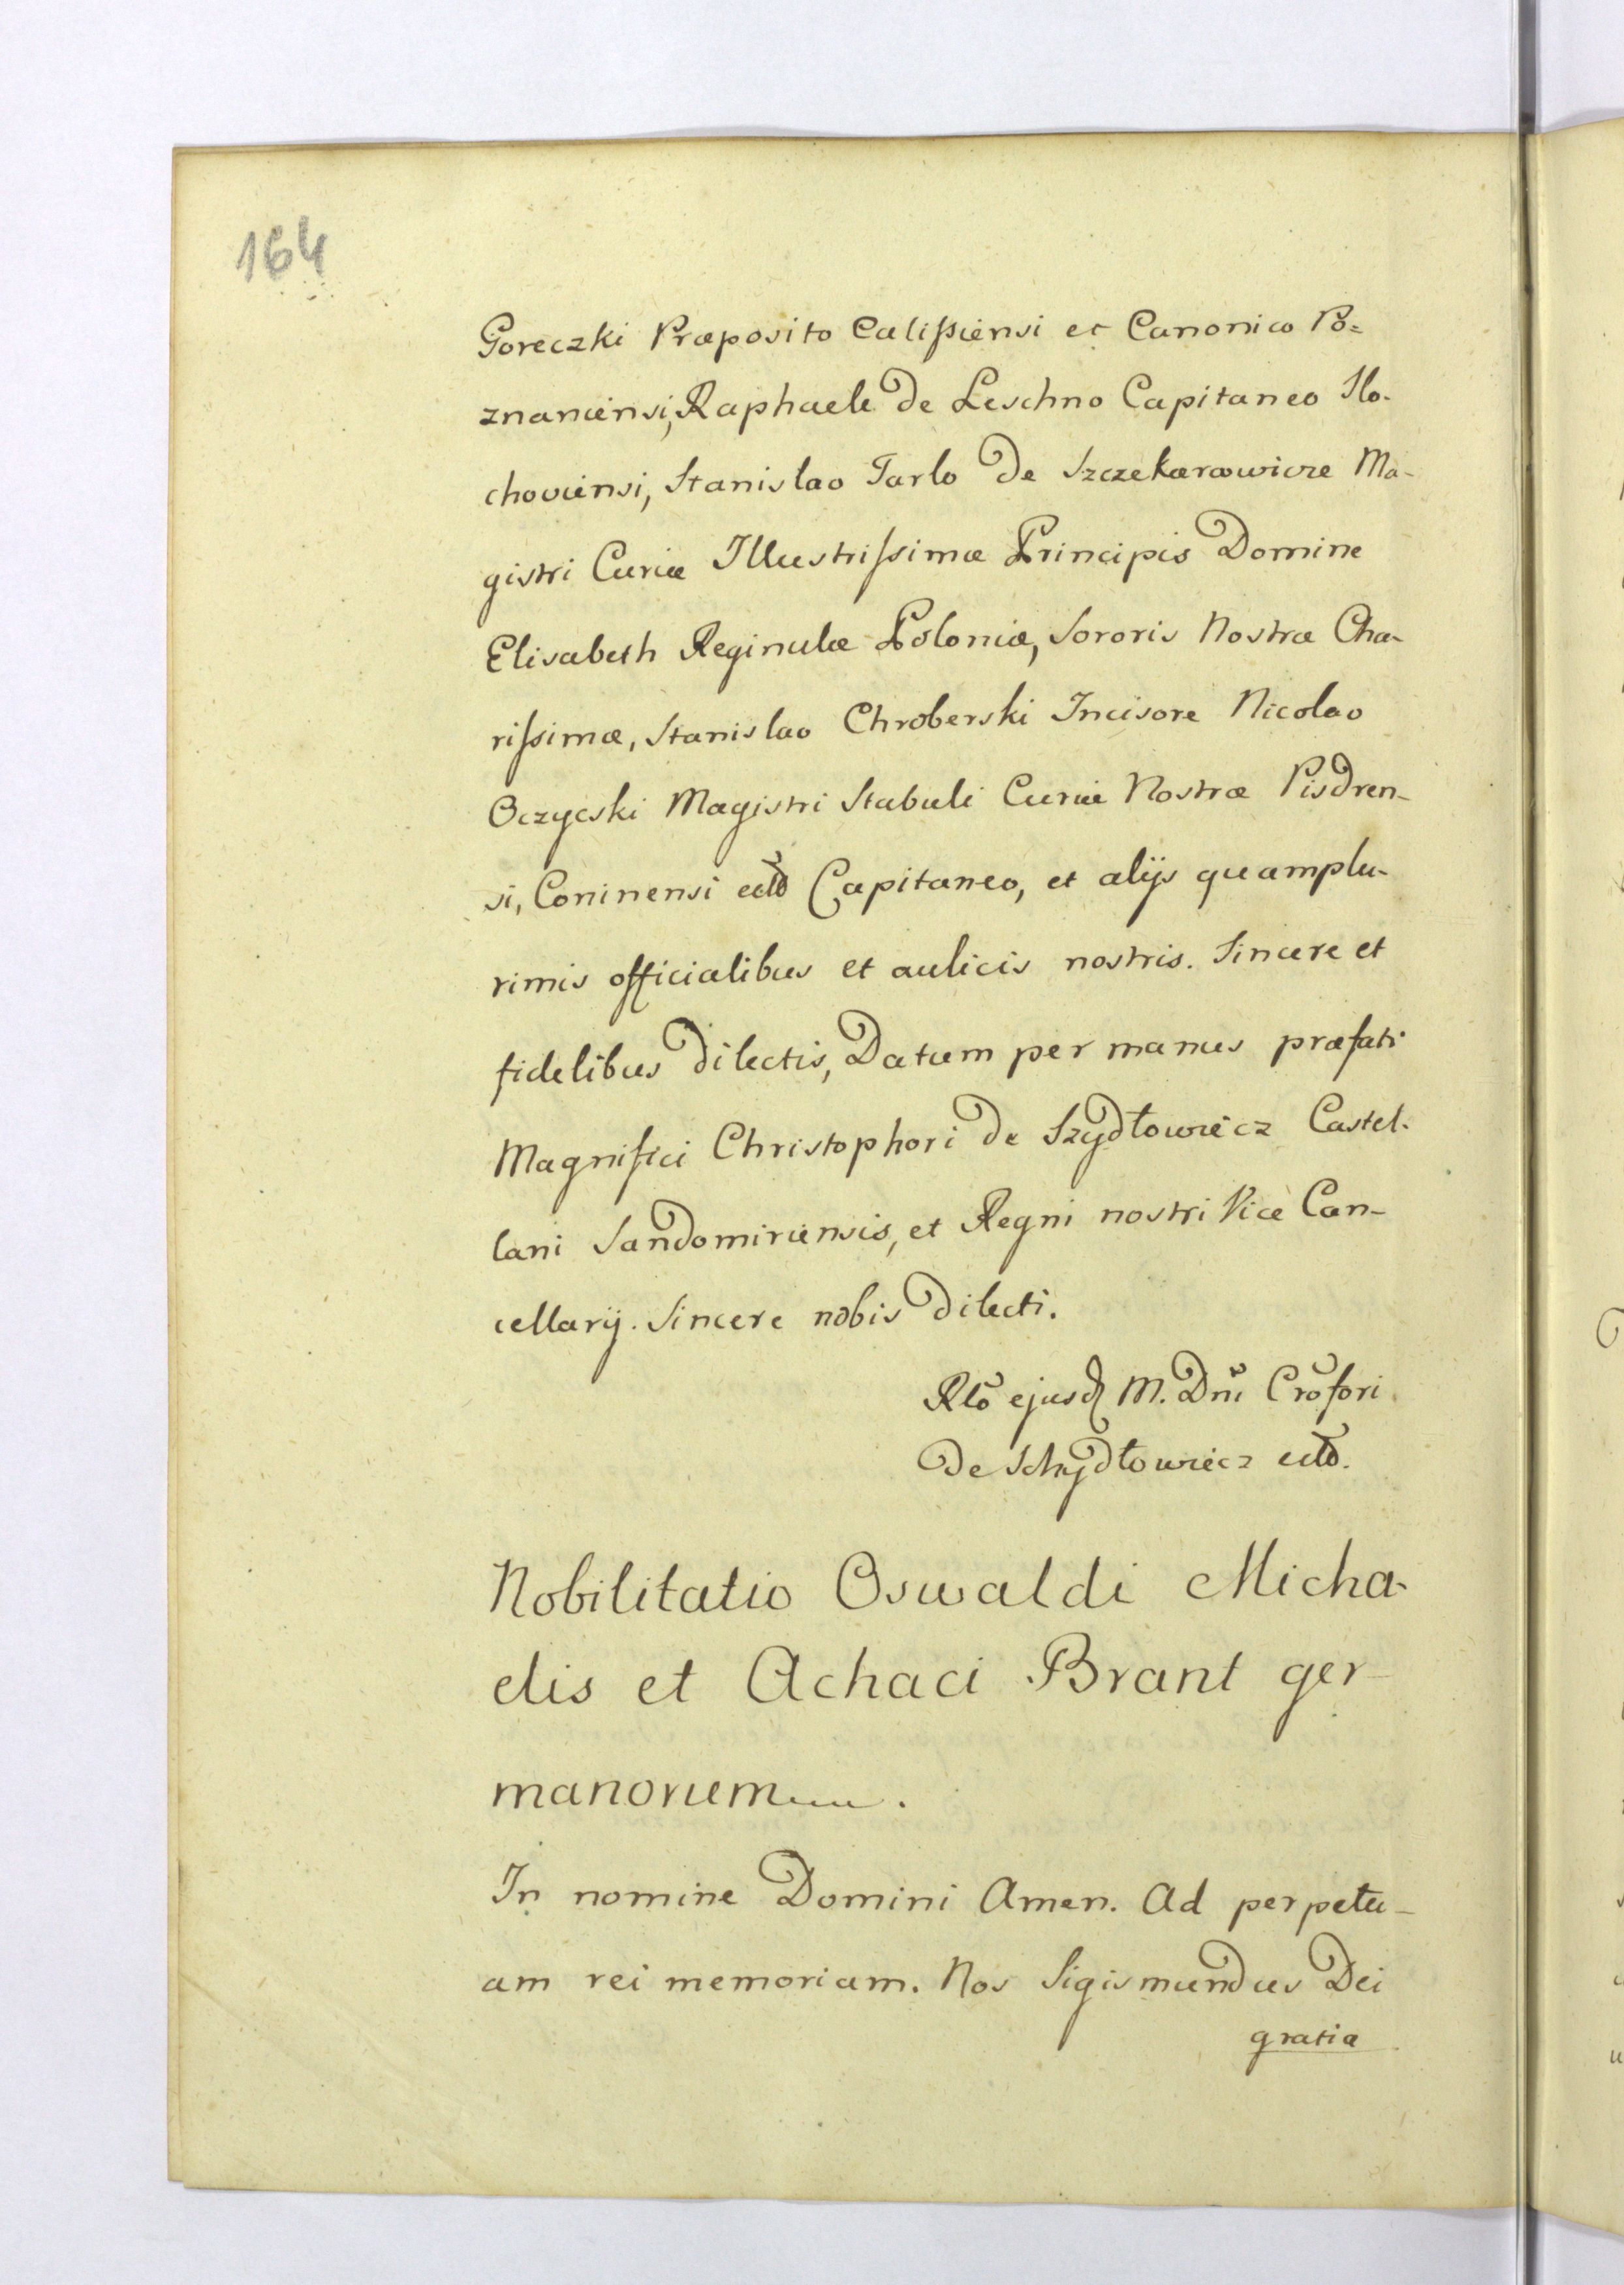 164
Goreczki Præposito Calißiensi et Canonico Po=
znaniensi, Raphaele de Leschno Capitaneo Slo-
choviensi, Stanislao Tarlo de Szczekarowicze Ma-
gistri Curiæ Illustrißimæ Principis Domine
Elisabeth Reginulæ Poloniæ, Sororis Nostræ Cha-
rißimæ, Stanislao Chroberski Incisore Nicolao
Oczycski Magistri Stabuli Curiæ Nostræ Pisdren-
si, Coninensi Capitaneo, et alijs quamplu-
rimis officialibus et aulicis nostris. Sincere et
fidelibus dilectis, Datum per manus præfati
Magnifici Christophori de Szydłowiecz Castel-
lani Sandomiriensis, et Regni nostri Vice Can-
cellarij. Sincere nobis dilecti.
Rlõ ejusd M. Dni Crõfori
de Schydłowiecz
Nobilitatio Oswaldi Micha-
elis et Achaci Brant ger-
manorum.
In nomine Domini Amen. Ad perpetu-
am rei memoriam. Nos Sigismundus Dei
gratia